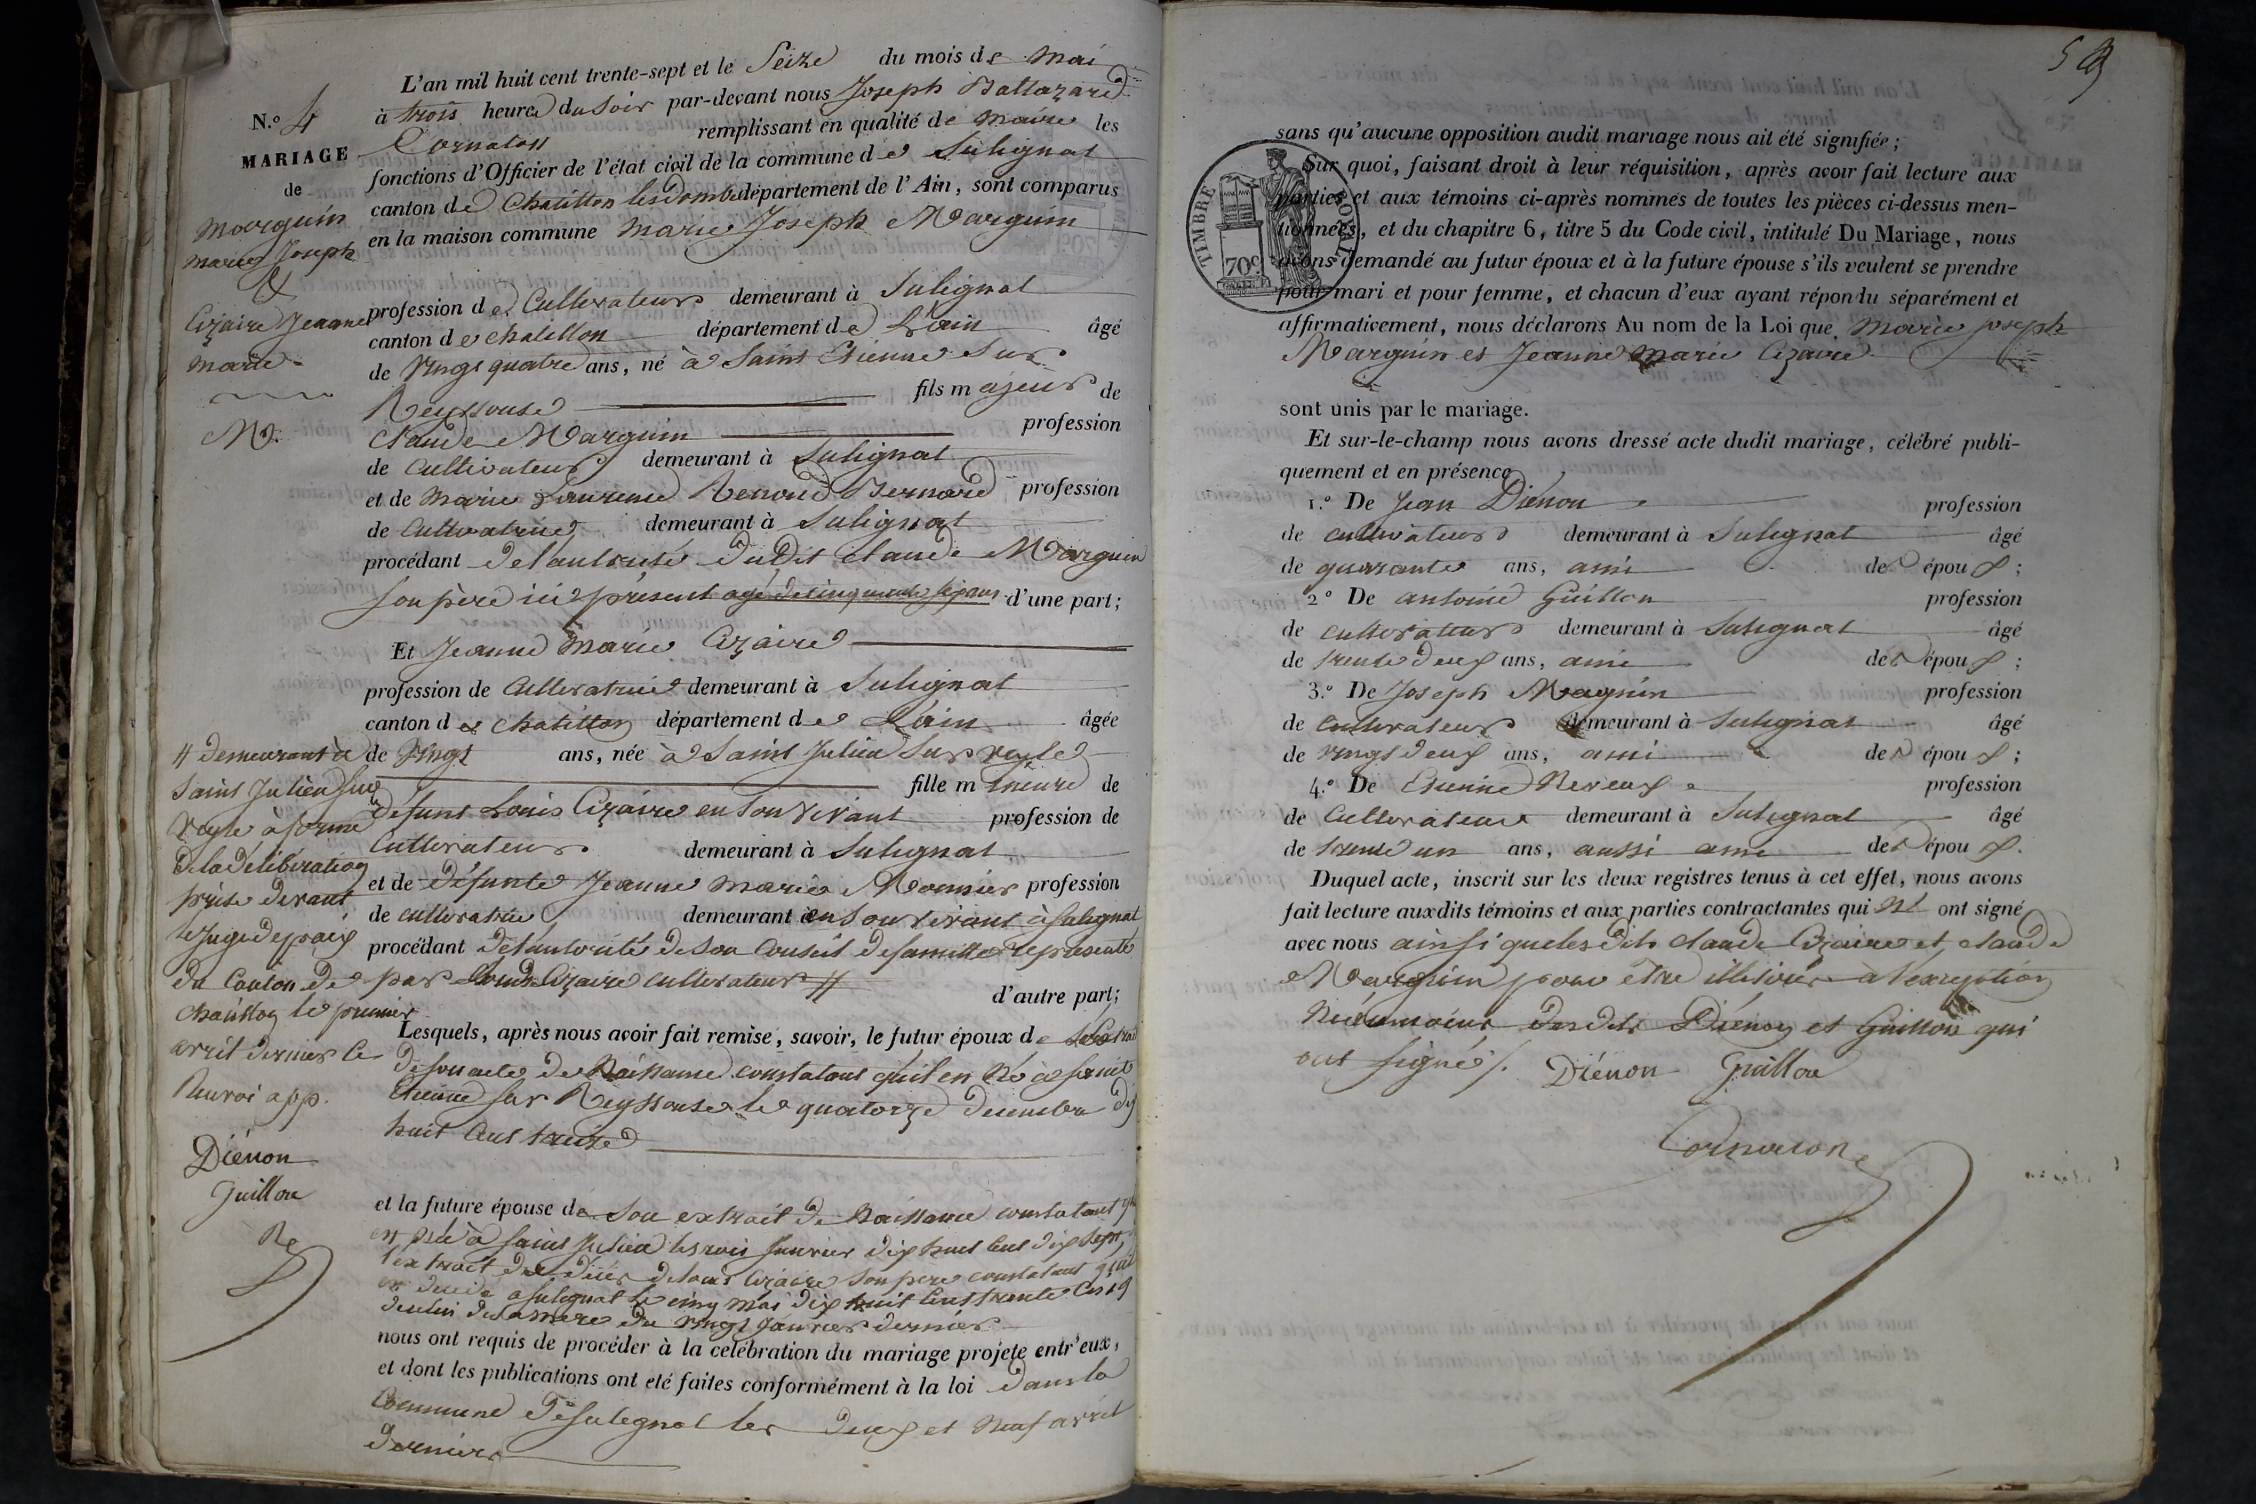 N.º 4
MARIAGE
de
Marguin
Marie Joseph
&
Cizaire Jeanne
Marie
L'an mil huit cent trente-sept et le Seize du mois de Mai
à trois heures du Soir par-devant nous Joseph Baltazard
Cornaton remplissant en qualité de Maire les
fonctions d'Officier de l'état civil de la commune de Sulignat
canton de Chatillon les dombe département de l'Ain, sont comparus
en la maison commune Marie Joseph Marguin
profession de Cultivateur demeurant à Sulignat
canton de chatillon département de L'ain âgé
de vingt quatre ans, né à Saint Etienne Sur
Reyssouse fils majeur de
Claude Marguin profession
de Cultivateur demeurant à Sulignat
et de Marie Laurence Renoud Bernard profession
de Cultivatrice demeurant à Sulignat
procédant de l'autorité dudit Claude Marguin
Son père ici présent agé de cinquante sept ans d'une part;
Et Jeanne Marie Cizaire
profession de Cultivatrice demeurant à Sulignat
canton de Chatillon département de L'ain âgée
de Vingt ans, née à Saint Julien Sur veyle
fille mineure de
defunt Louis Cizaire en Son vivant profession de
Cultivateur demeurant à Sulignat
et de défunte Jeanne Marie Monnier profession
de cultivatrice demeurant en Son vivant à Sulignat
procédant de l'autorité de Son Conseil de famille représenté
par Claude Cizaire cultivateur //
d'autre part;
// demeurant à
Saint Julien Sur
veyle à forme
de la délibération
prise devant
le Juge de paix
du Canton de
Chatillon le premier
avril dernier le
Renvoi app.
Diénon
Guillon
Lesquels, après nous avoir fait remise, savoir, le futur époux de L'extrait
de Son acte de Naissance constatant qu'il en né à Saint
Etienne Sur Reyssouse le quatorze décembre dix
huit cent treize
et la future épouse de Son extrait de Naissance constatant qu'
en née à Saint Julien le trois Janvier dix huit cent dix Sept,
l'extrait de décès de Louis Cizaire Son père constatant qu'il
en décédé à Sulignat le cinq mai dix huit cent trente Cinq
de celui de Sa mère du vingt Janvier dernier
nous ont requis de procéder à la célébration du mariage projeté entr'eux,
et dont les publications ont été faites conformément à la loi dans la
Commune de Sulignat les deux et Neuf avril
derniers
sans qu'aucune opposition audit mariage nous ait été signifiée;
Sur quoi, faisant droit à leur réquisition, après avoir fait lecture aux
parties et aux témoins ci-après nommés de toutes les pièces ci-dessus men-
tionnées, et du chapitre 6, titre 5 du Code civil, intitulé Du Mariage, nous
avons demandé au futur époux et à la future épouse s'ils veulent se prendre
pour mari et pour femme, et chacun d'eux ayant répondu séparément et
affirmativement, nous déclarons Au nom de la Loi que Marie Joseph
Marguin et Jeanne Marie Cizaire
TIMBRE ROYAL
70c
sont unis par le mariage.
Et sur-le-champ nous avons dressé acte dudit mariage, célébré publi-
quement et en présence
1.º De Jean Diénon profession
de cultivateur demeurant à Sulignat âgé
de quarante ans, ami des époux;
2º De Antoine Guillon profession
de cultivateur demeurant à Sulignat âgé
de trente deux ans, ami des époux;
3.º De Joseph Magnin profession
de Cultivateur demeurant à Sulignat âgé
de vingt deux ans, ami des époux;
4.º De Etienne Nereux profession
de Cultivateur demeurant à Sulignat âgé
de trente un ans, aussi ami des époux.
Duquel acte, inscrit sur les deux registres tenus à cet effet, nous avons
fait lecture auxdits témoins et aux parties contractantes qui Ne ont signé
avec nous ainsi que lesdits Claude Cizaire et Claude
Marguin pour être illitérés à l'exception
Néanmoins desdits Diénon et Guillon qui
ont Signé /.
Diénon Guillon
Cornaton